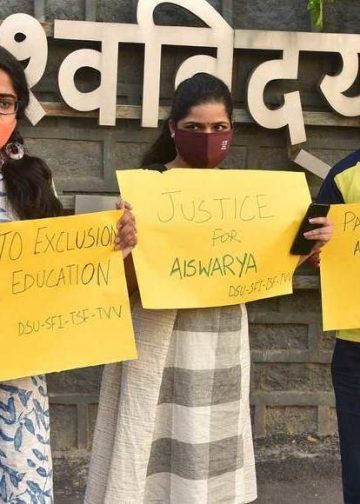 श्वविद्य
TO EXCLUSION
EDUCATION
DSU-SFI-TSF-TVV
JUSTICE
FOR
AISWARYA
DSU-SFI-TSF-TVV
PA
A